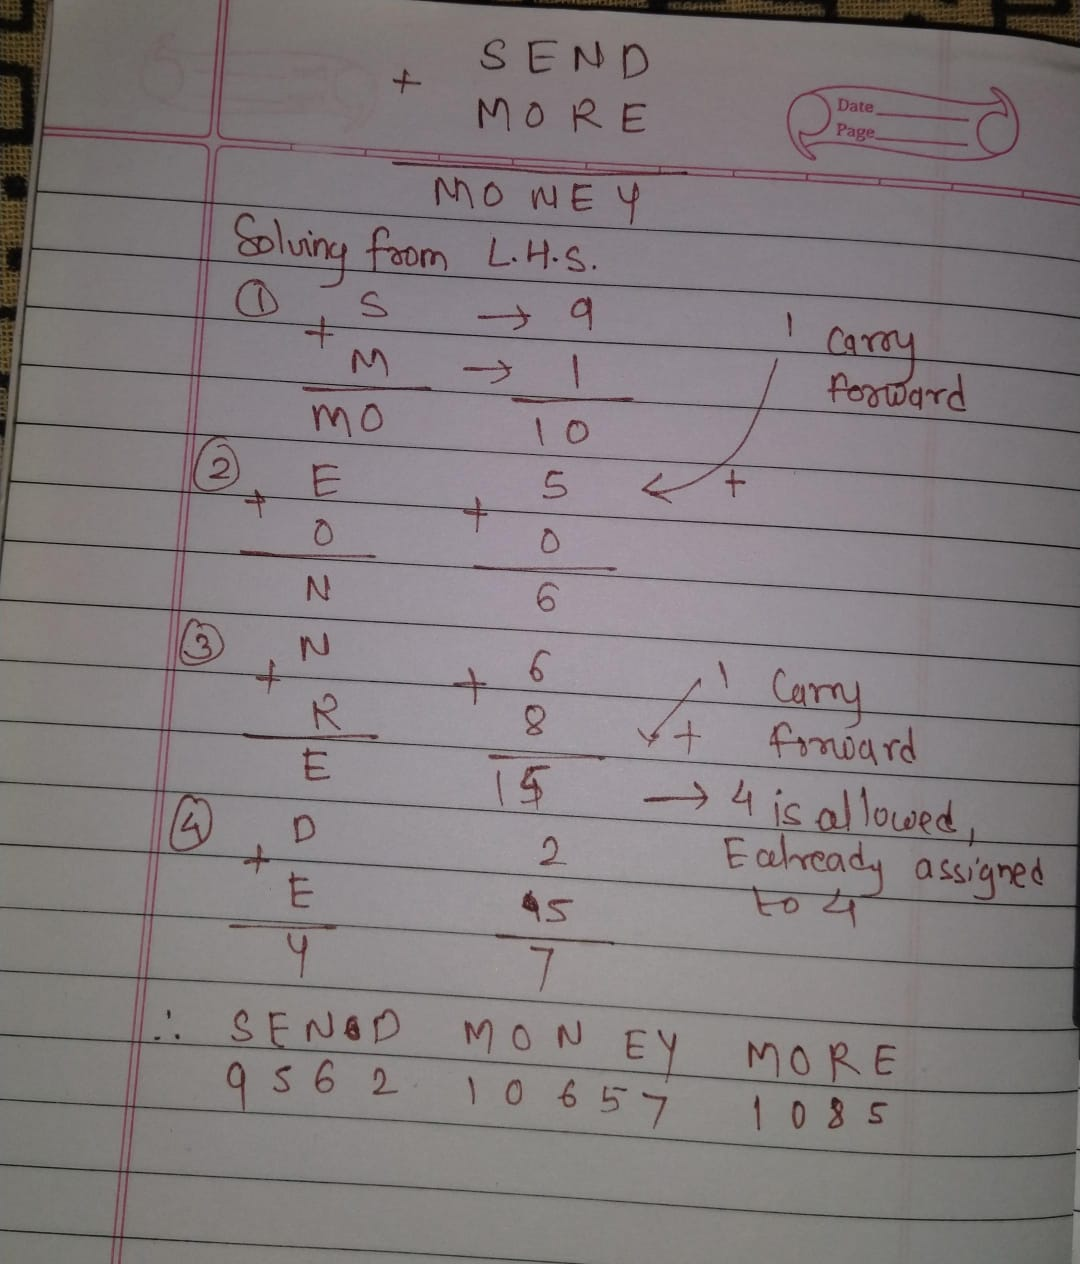 SEND
+
MORE
Date
Page
MONEY
Solving from L.H.S.
① S → 9
+
M → 1
MO 10
1 Carry
forward
② E 5
+ + +
O 0
N 6
③ N 6
+ +
R 8
E 15
1 Carry
+ forward
→ 4 is allowed,
E already assigned
to 4
④ D 2
+
E 5
Y 7
∴ SEND MONEY MORE
9562 10657 1085